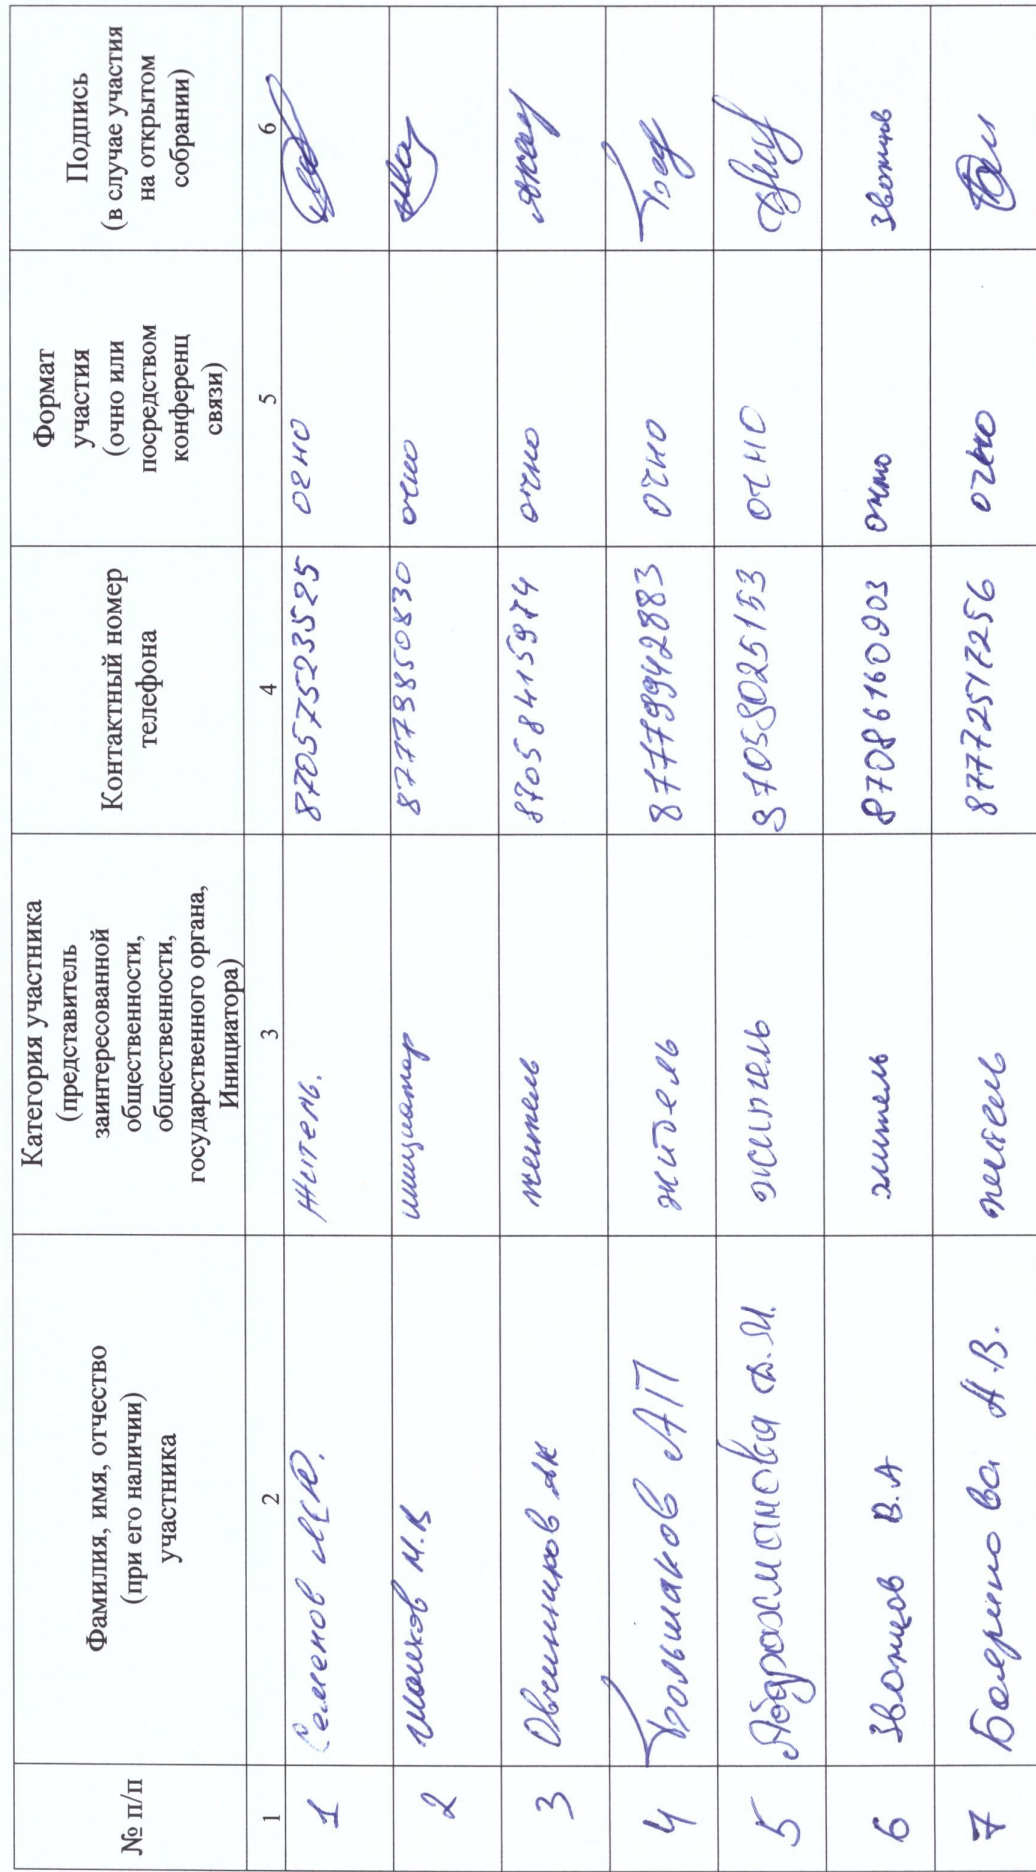 № п/п
Фамилия, имя, отчество
(при его наличии)
участника
Категория участника
(представитель
заинтересованной
общественности,
общественности,
государственного органа,
Инициатора)
Контактный номер
телефона
Формат
участия
(очно или
посредством
конференц
связи)
Подпись
(в случае участия
на открытом
собрании)
1 2 3 4 5 6
1 Семенов М.Ю. Житель. 87057523525 очно
2 М.В инициатор 87779850830 очно
3 Овчинников АК житель 87058415974 очно
4 Большаков АП житель 87779942883 очно
5 Абдрахманова житель 87058025153 очно
6 Звонцов В.А житель 87086160903 очно Звонцов
7 А.В. житель 87772517256 очно